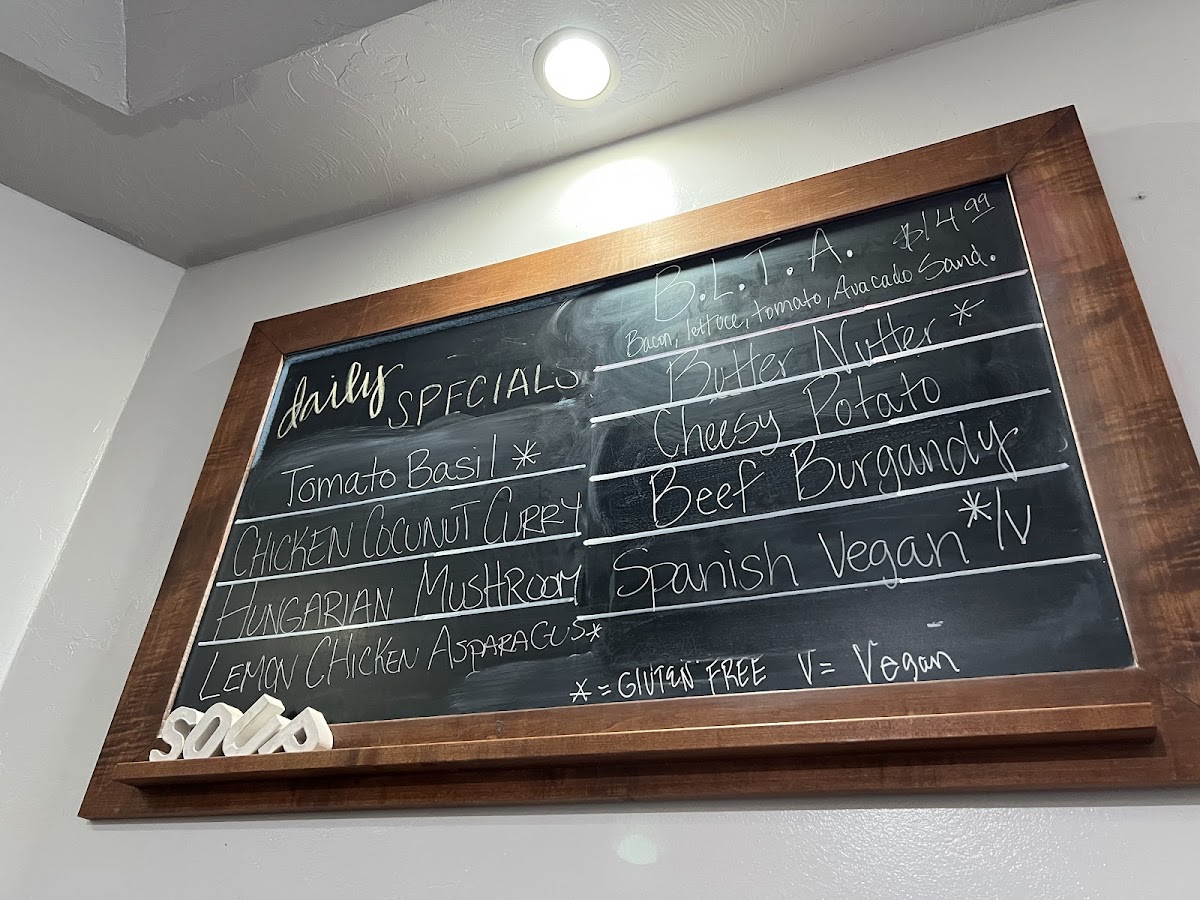 daily SPECIALS
Tomato Basil *
CHICKEN COCUNUT CURRY
HUNGARIAN MUSHROOM
LEMON CHICKEN ASPARAGUS*
B.L.T.A. $14.99
Bacon, lettuce, tomato, Avacado Sand.
Butter Nutter *
Cheesy Potato
Beef Burgandy
Spanish Vegan */V
* = GLUTEN FREE V = Vegan
SOUP